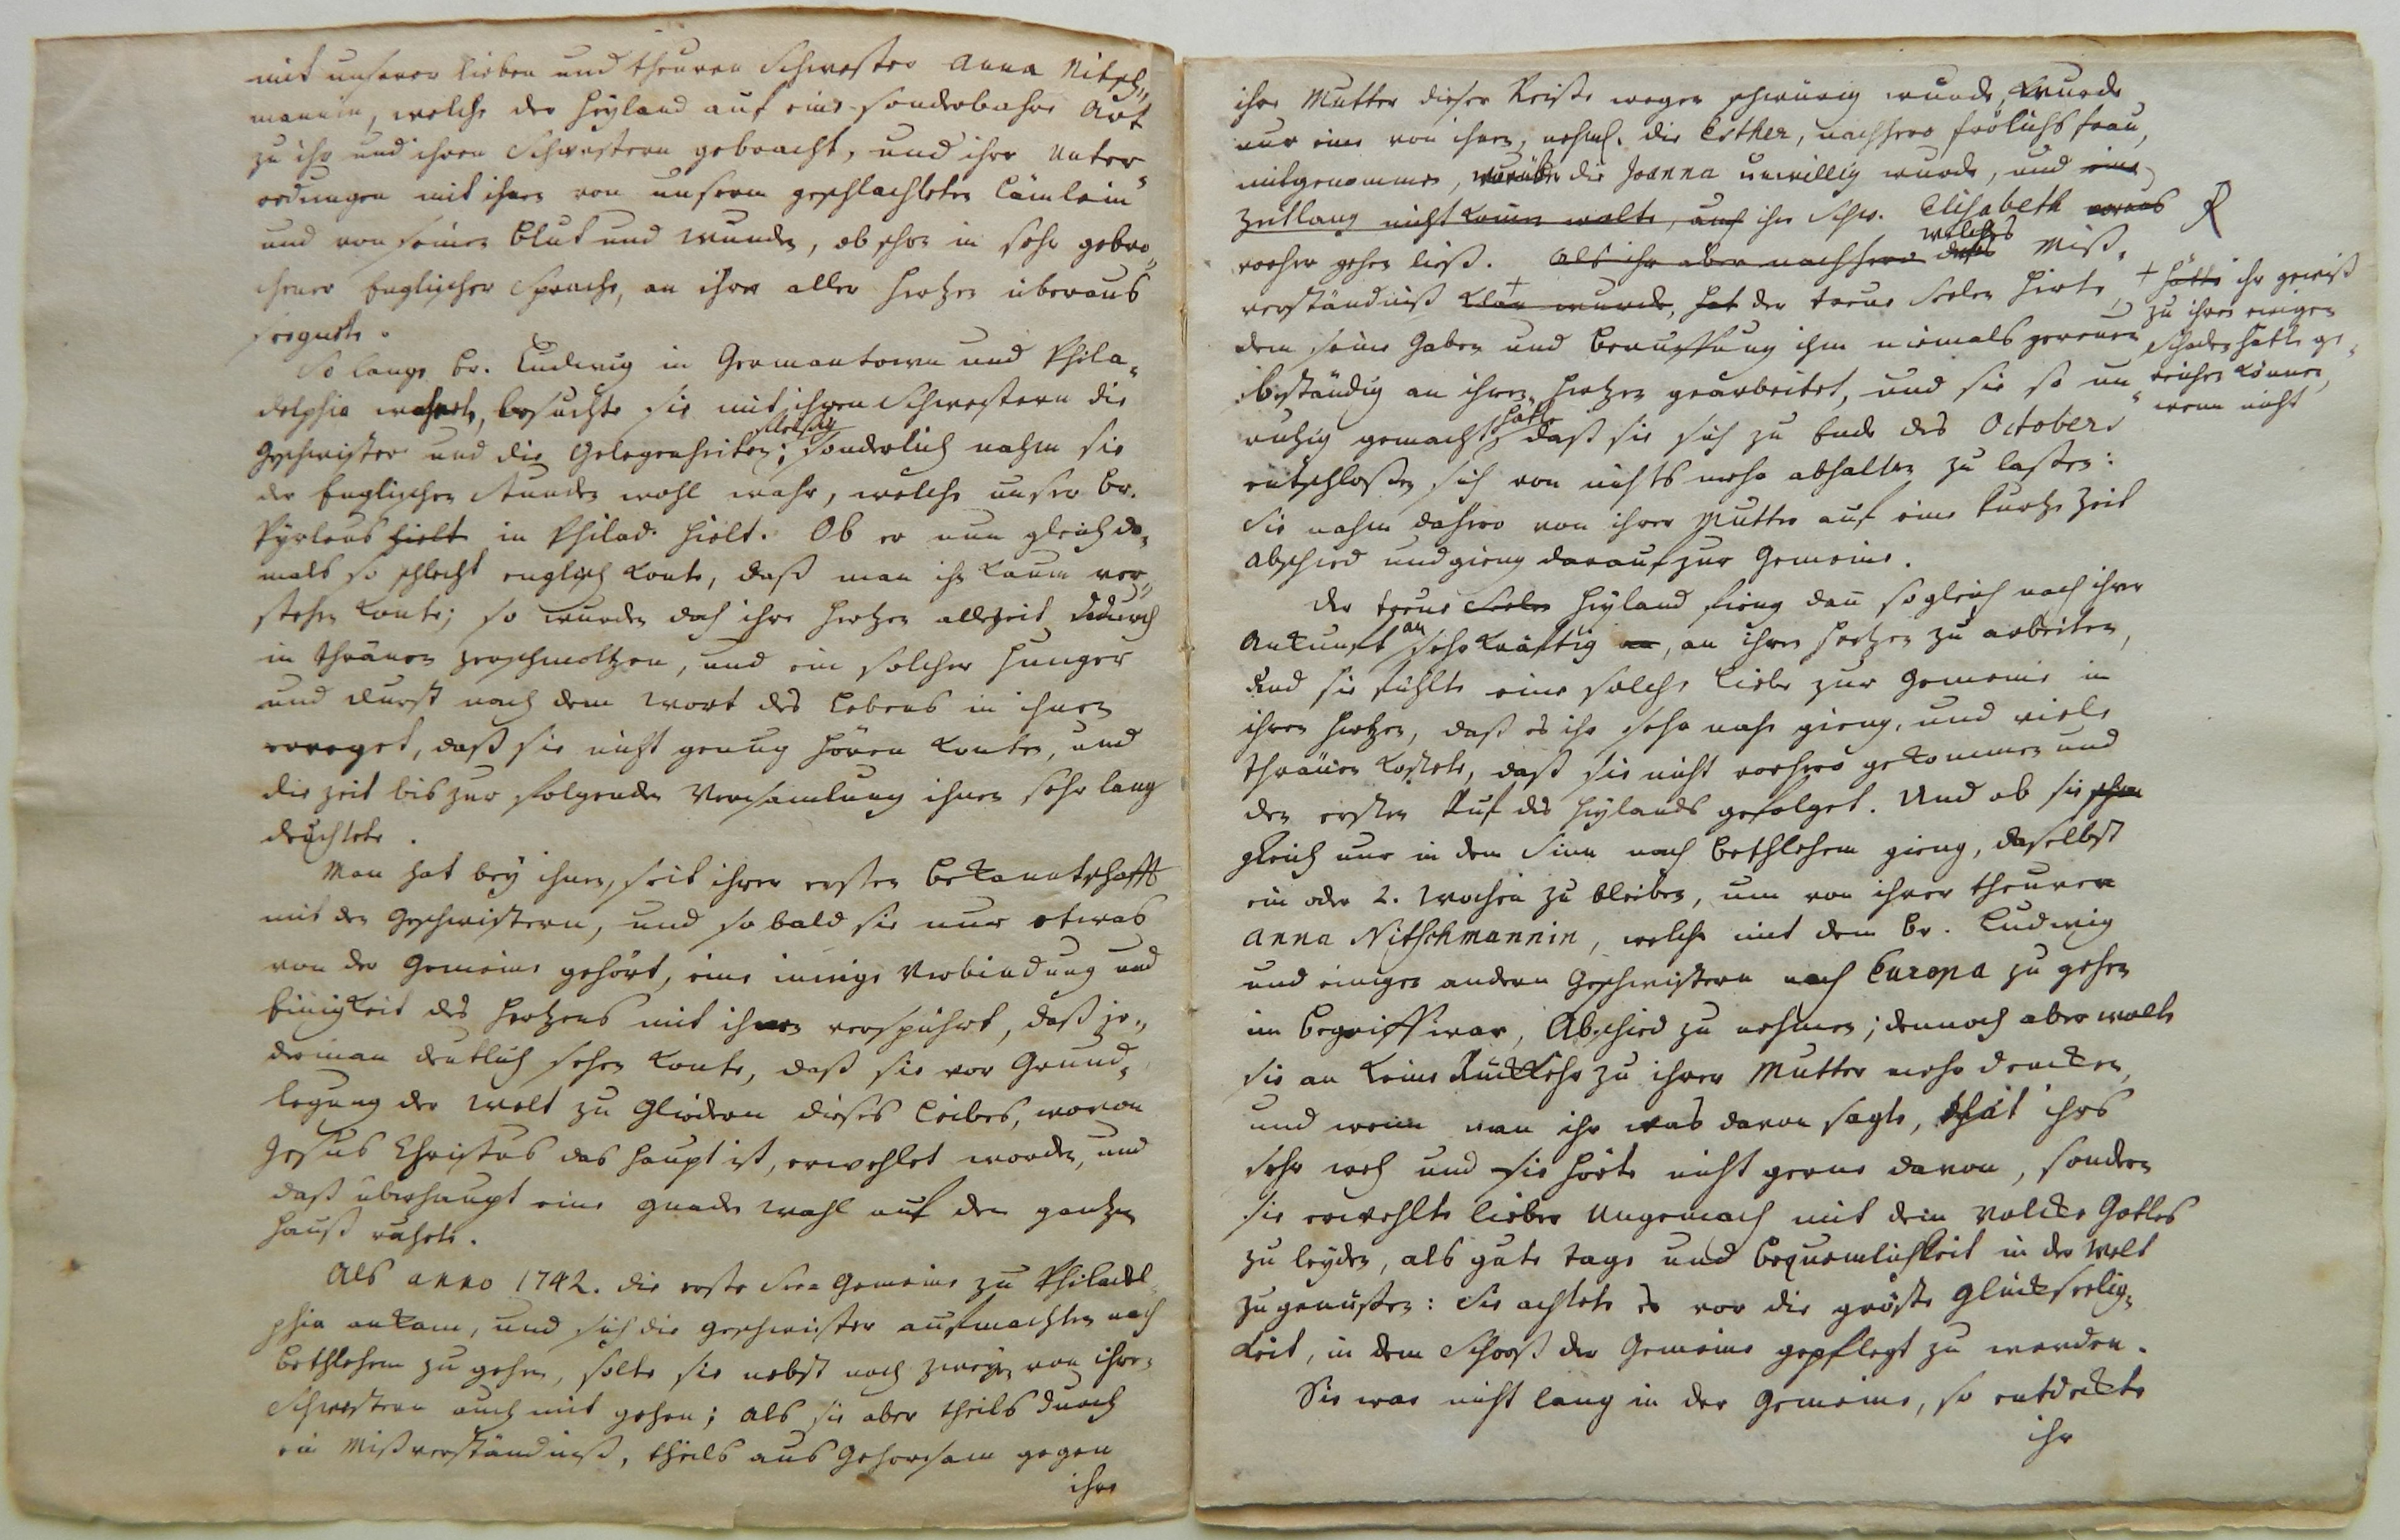 mit unserer lieben und theuren Schwester Anna Nitsch„
mannin, welche der Heyland auf eine sonderbahre Art
zu ihr und ihren Schwestern gebracht, und ihre Unter„
redungen mit ihnen von unserm geschlachteten Lämlein
und von seinen Blut und Wunden, ob schon in sehr gebro„
chener Englischer Sprache, an ihrer aller Hertzen überaus
seegnete.
So lange Br. Ludwig in Germantown und Phila„
delphia wohnete, besuchte sie mit ihren Schwestern die
Geschwister und die Gelegenheiten fleißig; sonderlich nahm sie
der Englischen Stunden wohl wahr, welche unser Br.
Pyrlaus hielt in Philad. hielt. Ob er nun gleich da„
mals so schlecht englisch konte, daß man ihn kaum ver„
stehen konte; so wurden doch ihre Hertzen allezeit dadurch
in Thränen zerschmoltzen, und ein solcher Hunger
und Durst nach dem Wort des Lebens in ihnen
erreget, daß sie nicht genug hören konten, und
die Zeit bis zur folgenden Versamlung ihnen sehr lang
deuchtete.
Man hat bey ihnen, seit ihrer ersten Bekanntschafft
mit den Geschwistern, und so bald sie nur etwas
von der Gemeine gehört, eine innige Verbindung und
Einigkeit des Hertzens mit ihnen verspührt, daß je„
derman deutlich sehen konte, daß sie vor Grund„
legung der Welt zu Gliedern dieses Leibes, wovon
Jesus Christus das Haupt ist, erwehlet worden, und
daß überhaupt eine Gnaden Wahl auf dem gantzen
Hauß ruhete.
Als anno 1742. die erste See Gemeine zu Philadel„
phia ankam, und sich die Geschwister aufmachten nach
Bethlehem zu gehen, solte sie nebst noch zweyen von ihren
Schwestern auch mit gehen; als sie aber theils durch
ein Mißverständniß, theils aus Gehorsam gegen
ihre
ihre Mutter dieser Reise wegen schwürig wurde, wurde
nur eine von ihnen, nehml. die Esther, nachhero Frölichs Frau,
mitgenommen, worüber die Joanna unwillig wurde, und eine
Zeitlang nicht kommen wolte, und ihre Schw. Elisabeth voraus
vorher gehen ließ. Als ihr aber nachhero dieses welches Miß„
verständniß + klar wurde, hat der treue Seelen Hirte,
dem seine Gaben und Beruffung ihn niemals gereuen
beständig an ihren Hertzen gearbeitet, und sie so un„
ruhig gemacht hätte, daß sie sich zu Ende des Octobers
entschloßen sich von nichts mehr abhalten zu laßen:
Sie nahm dahero von ihrer Mutter auf eine kurtze Zeit
Abschied und gieng darauf zur Gemeine.
+ hätte ihr gewiß
zu ihren ewigen
Schaden hätte ge„
reichen können,
wenn nicht
Der treue Seelen Heyland fieng dan sogleich nach ihrer
Ankunft an sehr kräftig an, an ihren Hertzen zu arbeiten,
und sie fühlte eine solche Liebe zur Gemeine in
ihren Hertzen, daß es ihr sehr nahe gieng, und viele
Thränen kostete, daß sie nicht vorhero gekommen und
den ersten Ruf des Heylands gefolget. Und ob sie schon
gleich nur in dem Sinn nach Bethlehem gieng, daselbst
ein oder 2. Wochen zu bleiben, um von ihrer theuren
Anna Nitschmannin, welche mit dem Br. Ludwig
und einigen andern Geschwistern nach Europa zu gehen
im Begriff war, Abschied zu nehmen; dennoch aber wolte
sie an keine Rückkehr zu ihrer Mutter mehr dencken,
und wenn man ihr was davon sagte, that ihrs
sehr weh und sie hörte nicht gerne davon, sondern
sie erwehlte lieber Ungemach mit dem Volcke Gottes
zu leyden, als gute Tage und Bequemlichkeit in der Welt
zu genüßen: Sie achtete es vor die gröste Glückseelig„
keit, in dem Schooß der Gemeine gepflegt zu werden.
Sie war nicht lang in der Gemeine, so entdeckte
ihr